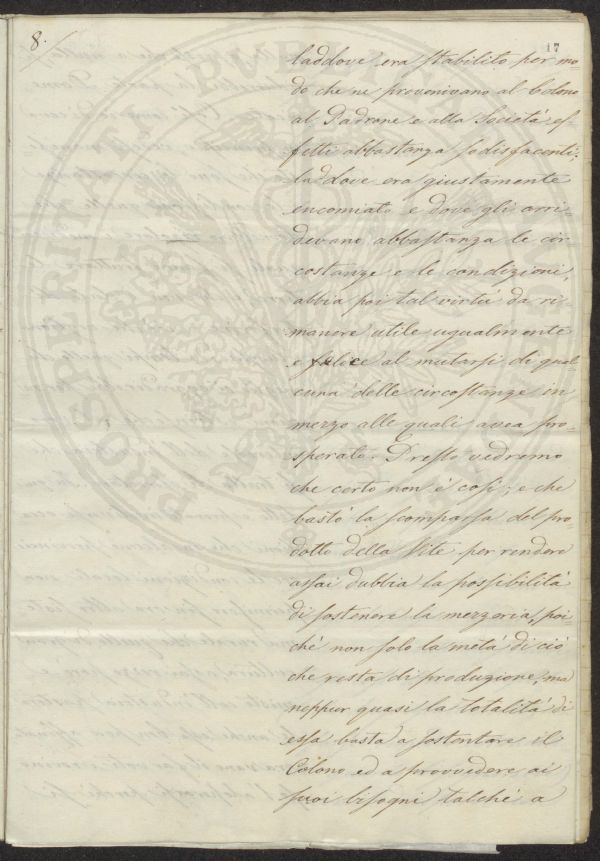 8.
17
laddove era stabilito per mo-
do che ne provenivano al Colono
al Padrone e alla Società ef-
fetti abbastanza sodisfacenti,
laddove era giustamente
encomiato e dove gli arri-
devano abbastanza le cir
costanze e le condizioni,
abbia poi tal virtù da ri-
manere utile ugualmente
e felice al mutarsi di qual-
cuna delle circostanze in
mezzo alle quali avea pro-
sperato. Presto vedremo
che certo non é così; e che
bastò la scomparsa del pro-
dotto della Vite per rendere
assai dubbia la possibilità
di sostenere la mezzeria, poi
ché non solo la metà di ciò
che resta di produzione, ma
neppur quasi la totalità di
essa basta a sostentare il
Colono ed a provvedere ai
suoi bisogni talché a
PROSPERITATI PUBLICAE